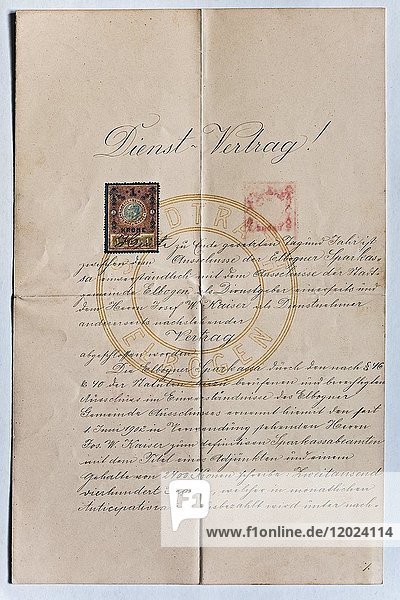 Dienst-Vertrag!
1
KRONE
STADTRAT
ELBOGEN
zu Ende gesetzten Tag und Jahr ist
zwischen dem Ausschusse der Elbogner Sparkas-
sa einverständlich mit dem Ausschusse der Stadt-
gemeinde Elbogen als Dienstgeber einerseits und
dem Herrn Josef W. Kaiser als Dienstnehmer
andererseits nachstehender
Vertrag
abgeschlossen worden.
Die Elbogner Sparkassa durch den nach § 16
& 40 der Statuten berufenen und beeideten
Ausschuss im Einverständnisse des Elbogner
Gemeinde Ausschusses ernennt hiermit den seit
1 Juni 1902 in Verwendung stehenden Herrn
Jos. W. Kaiser zum definitiven Sparkassabeamten
mit dem Titel eines Adjunkten und einem
Gehalte von 2400 Kronen schreibe: Zweitausend
vierhundert welcher in monatlichen
Anticipativraten ausbezahlt wird unter nach-
./.
F1online
12024114